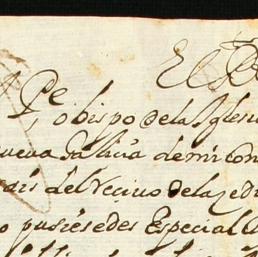 El R
Re obispo de la Iglesi
nueva Galicia de mi con
del recivo de la zed
o pusiesedes Especial